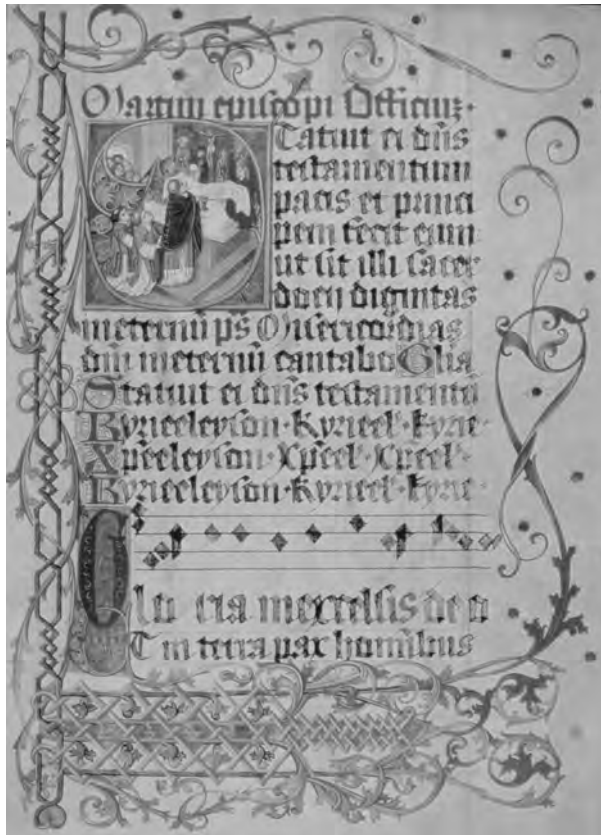 Martini episcopi Officium.
Statuit ei dñs
testamentum
pacis et princi
pem fecit eum
ut sit illi sacer
docij digintas
ineternũ ps̃ Misericordias
dñi ineternũ cantabo Glia
Statuit ei dñs testamentũ
Kyrieeleyson · Kyrieel · Kyrie ·
Xpeeleyson · Xpeel · Xpeel ·
Kyrieeleyson · Kyrieel · Kyrie ·
Glo ria inexcelsis de o
Et in terra pax hominibus